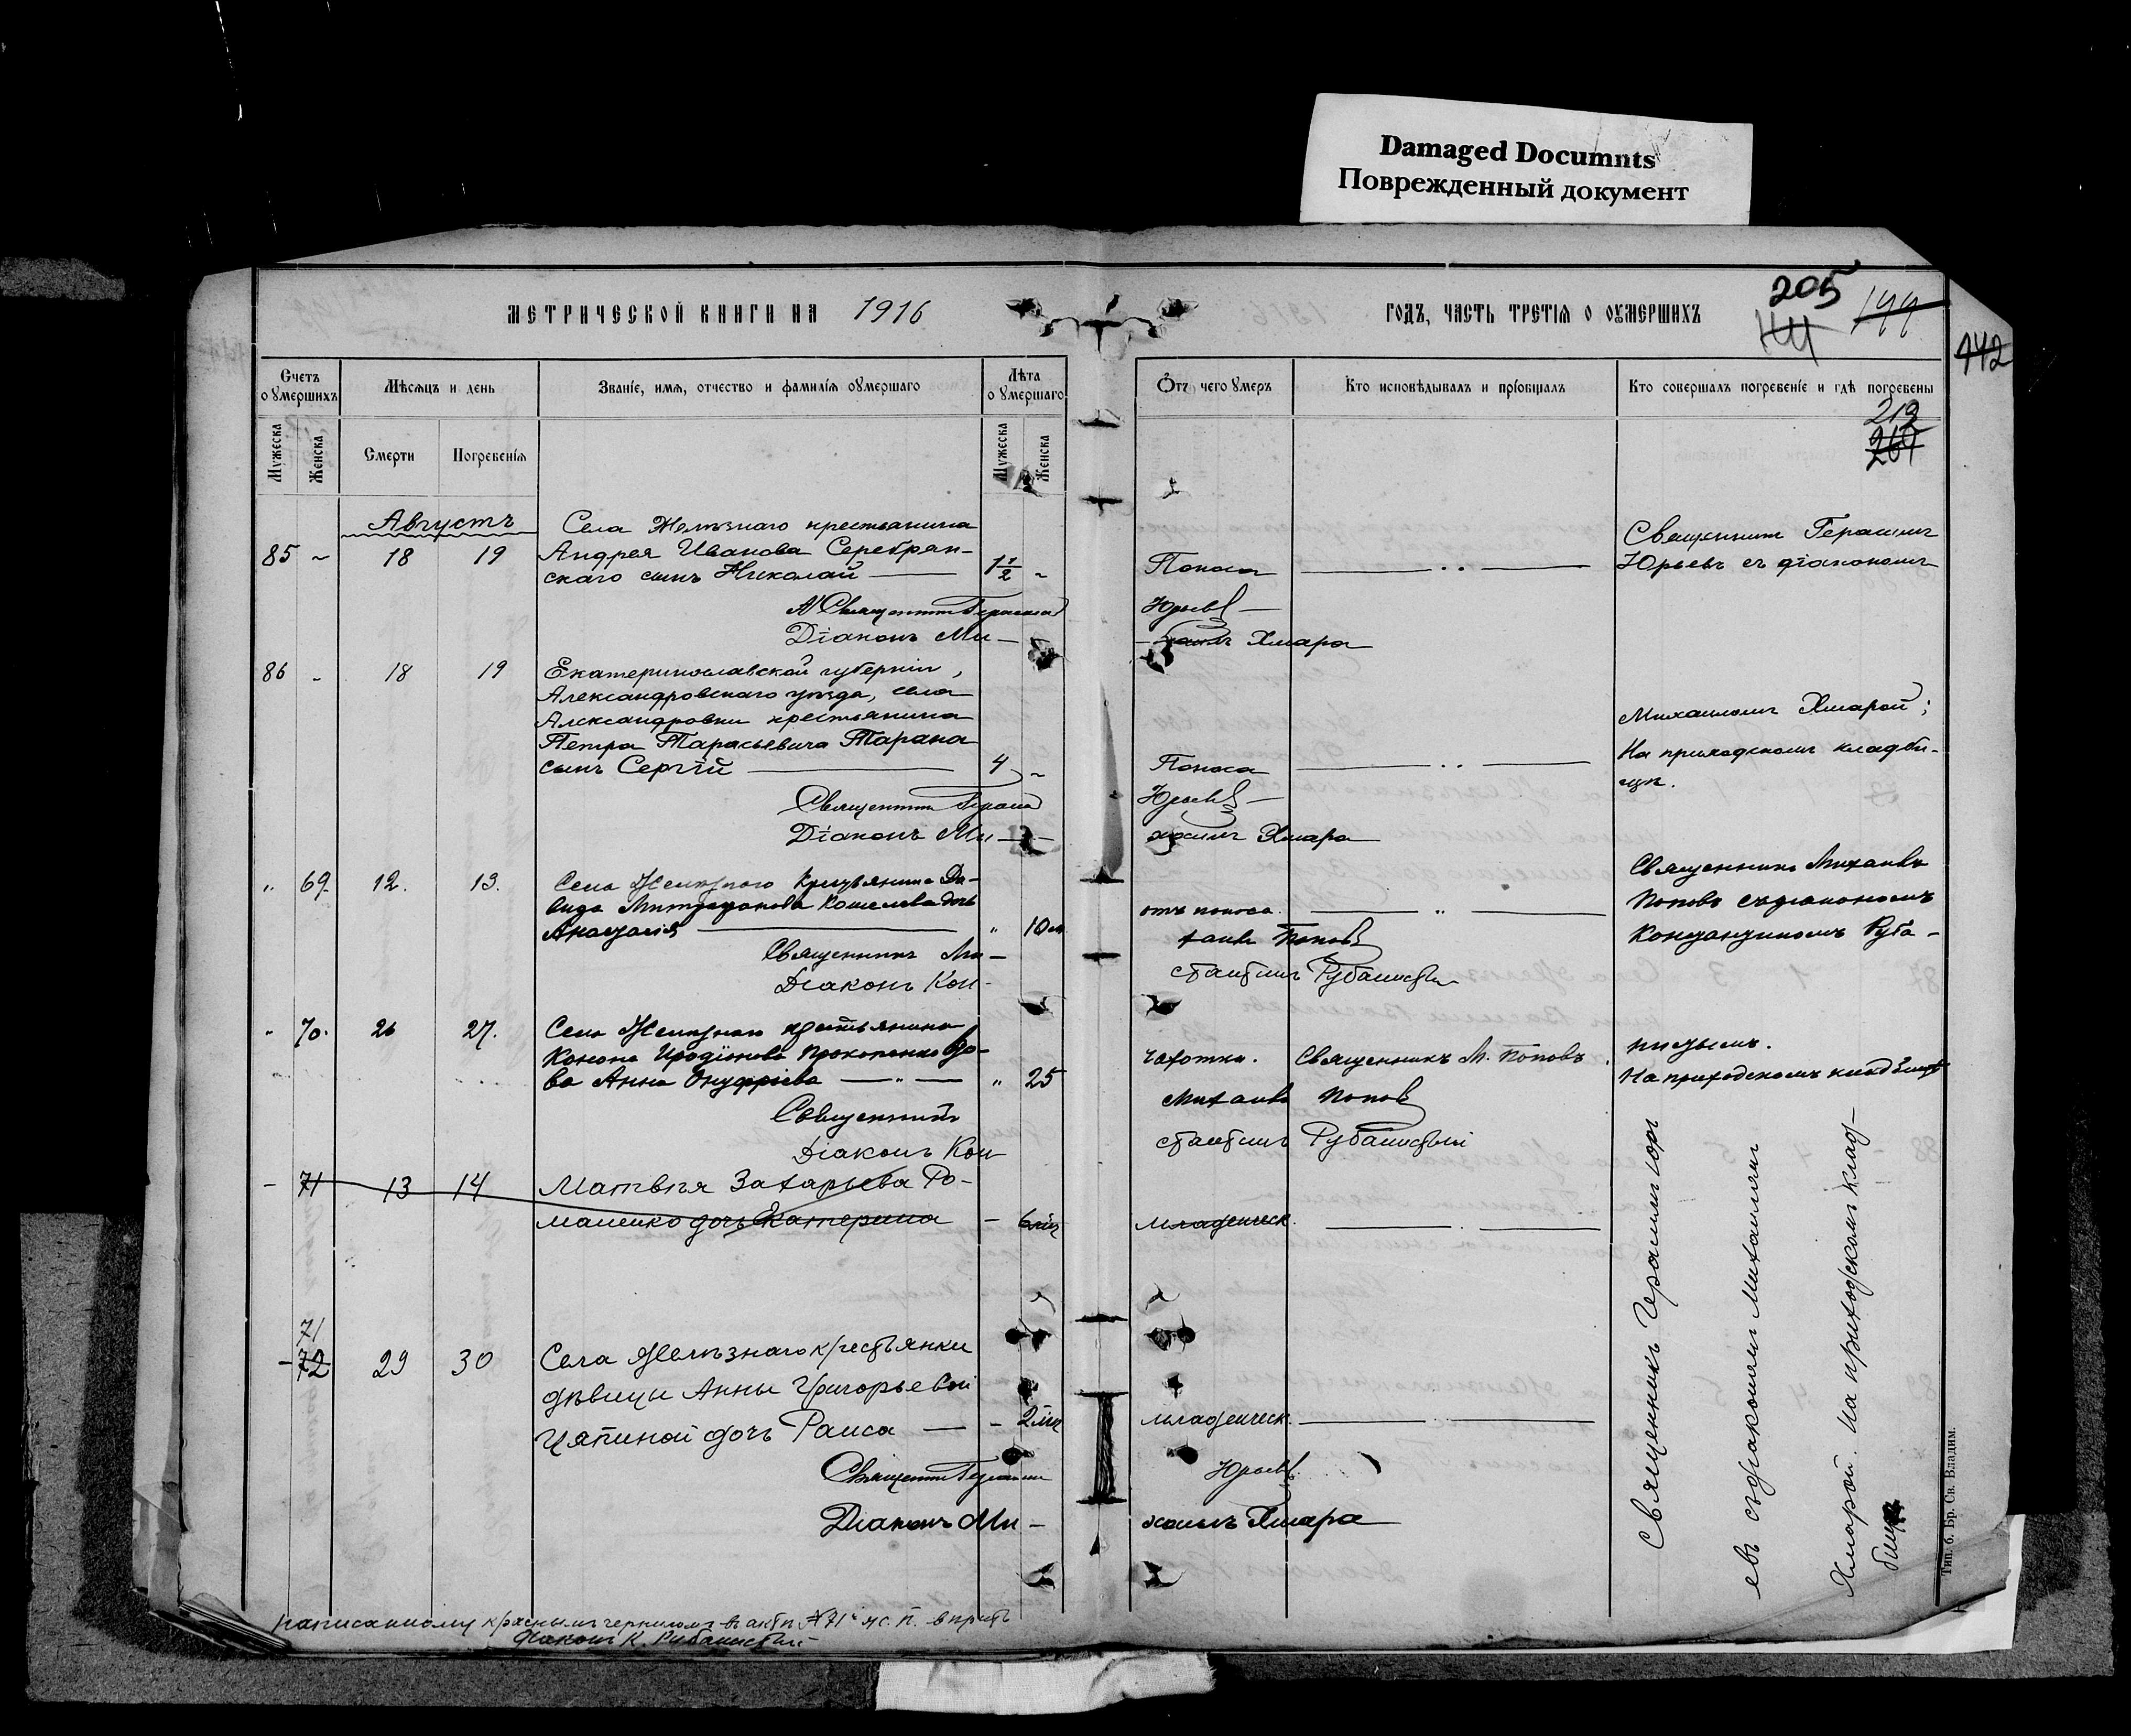 Damaged Documnts
Поврежденный документ
МЕТРИЧЕСКОЙ КНИГИ НА 1916
ГОДЪ, ЧАСТЬ ТРЕТІЯ О ОУМЕРШИХЪ
205
199
442
Счетъ оумершихъ
Мѣсяцъ и день
Званіе, имя, отчество и фамилія оумершаго
Лѣта оумершаго
Отъ чего оумеръ
Кто исповѣдывалъ и пріобщалъ
Кто совершалъ погребеніе и гдѣ погребены
219
Мужеска
Женска
Смерти
Погребенія
Мужеска
Женска
Августъ
Села Желѣзнаго крестьянина
85 - 18 19 Андрея Иванова Серебрян-
скаго сынъ Николай — 1 1/2 - Поноса
Священникъ Герасимъ
Юрьевъ съ діакономъ
Священникъ Герасимъ Юрьевъ
Діаконъ Ми- Хмара
86 - 18 19 Екатеринославской губерніи,
Александровскаго уѣзда, села
Александровки крестьянина
Петра Тарасьевича Тарана
сынъ Сергій — 4 - Поноса
Михаиломъ Хмарой;
На приходскомъ кладби-
щѣ.
Священникъ Юрьевъ
Діаконъ Ми- хаилъ Хмара
" 69. 12. 13. Села Желѣзнаго крестьянина Да-
вида Митрофанова Кошелева дочь
Анастасія — " 10 м отъ поноса.
Священникъ Михаилъ
Поповъ съ діакономъ
Константиномъ Руба-
Священникъ Ми- хаилъ Поповъ
Діаконъ Кон- стантинъ Рубанистый
" 70. 26 27. Села Желѣзнаго крестьянина
Конона Иродіонова Прокопенко вдо-
ва Анна Онуфріева — " — " 25 чахотки. Священникъ М. Поповъ.
нистымъ.
На приходскомъ кладбищѣ
Священникъ Михаилъ Поповъ
Діаконъ Кон- стантинъ Рубанистый
- 71 13 14 Матвѣя Захарьева Ро-
маненко дочь Екатерина - 6 мѣс младенческ.
71
- 72 29 30 Села Желѣзнаго крестьянки
дѣвицы Анны Григорьевой
Цяпиной дочь Раиса — - 2 мѣс младенческ.
Священникъ Юрьевъ
Діаконъ Ми- хаилъ Хмара
Священникъ Герасимъ Юрь
евъ съ діакономъ Михаиломъ
Хмарой. На приходскомъ клад-
бищѣ
Тип. б. Бр. Св. Владим.
написанному красными чернилами въ актѣ № 71
Діаконъ К. Рубанистый